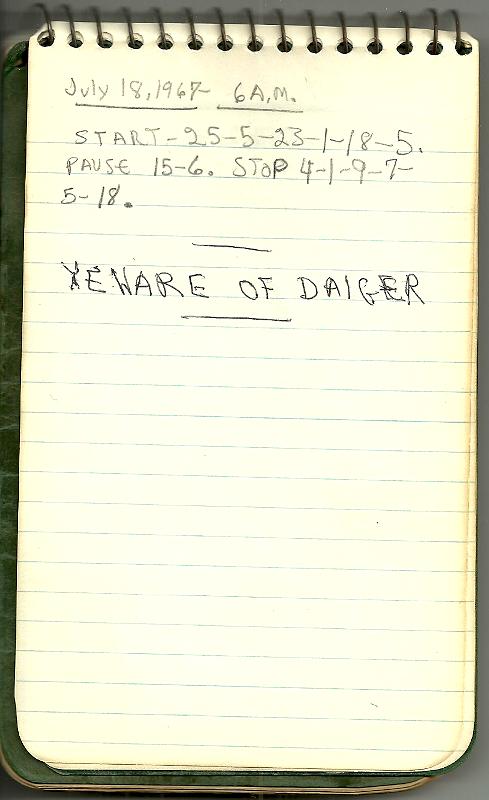 July 18, 1967- 6A.M.
START-25-5-23-1-18-5.
PAUSE 15-6. STOP 4-1-9-7-
5-18.
YEWARE OF DAIGER